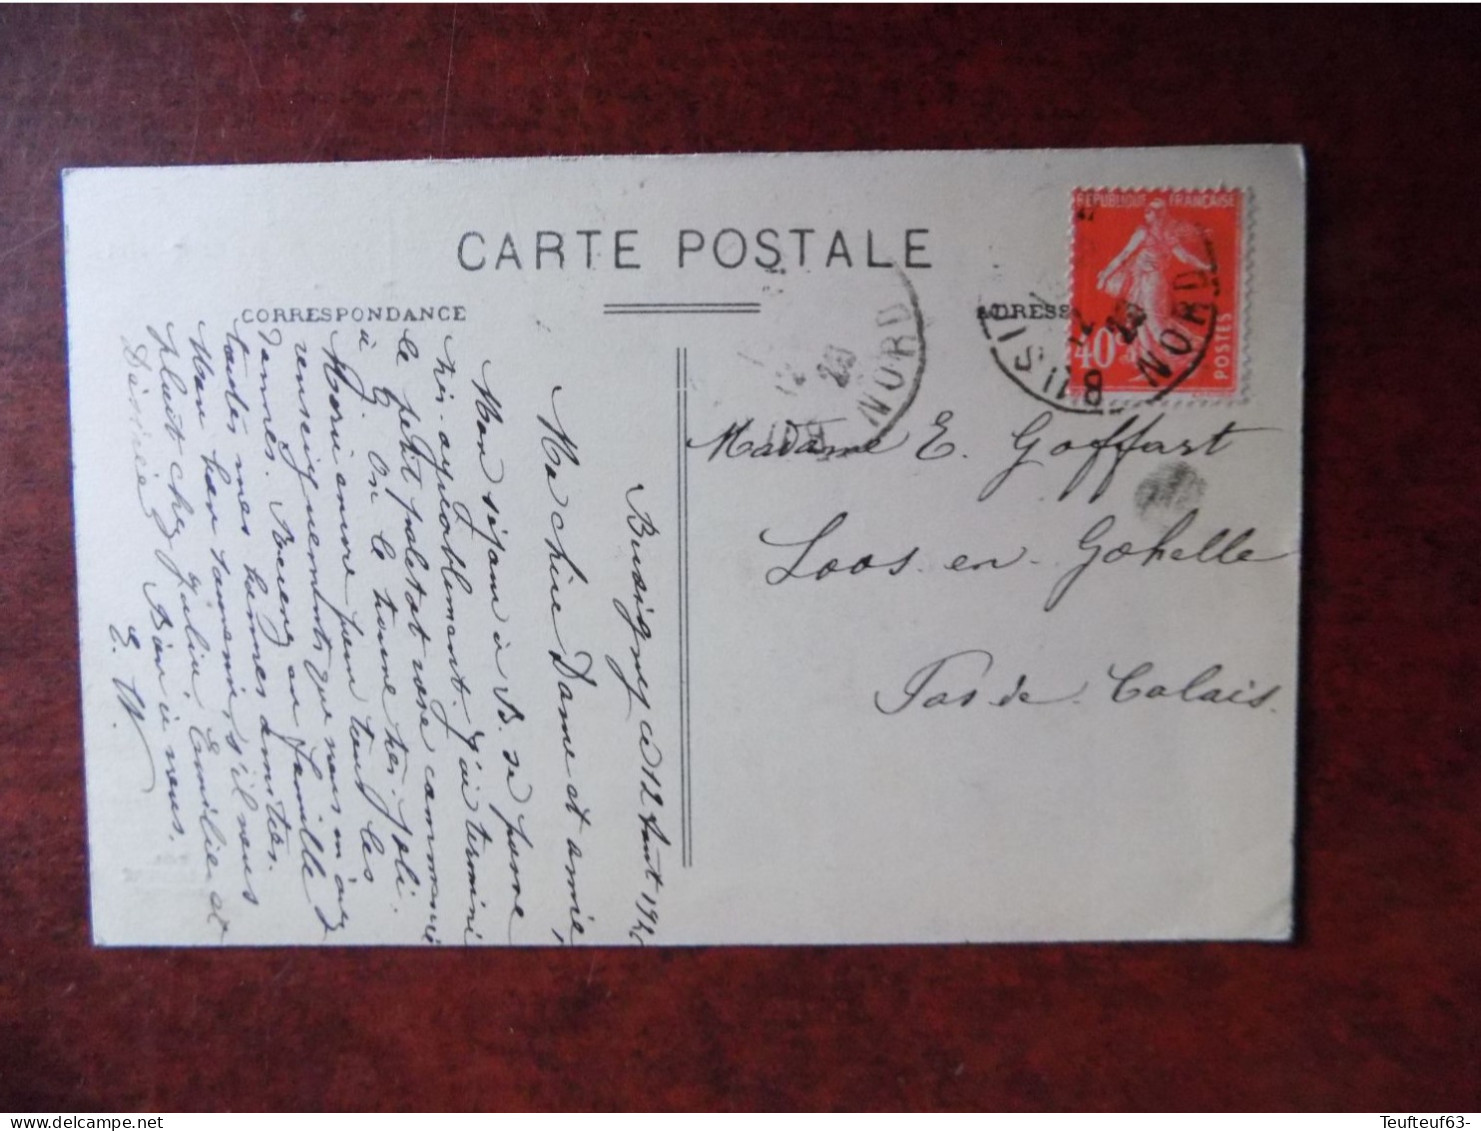 CARTE POSTALE
CORRESPONDANCE
ADRESSE
REPUBLIQUE FRANÇAISE
40c
POSTES
NORD
NORD
Madame E. Goffart
Loos-en-Gohelle
Pas-de-Calais.
Busigny ce 12 Août 192
Ma chère Dame et amie,
Mon séjour à B. se passe
très agréablement. J'ai terminé
le petit paletot rose commencé
à G. On le trouve très joli.
anne pour tous les
renseignements que vous m'avez
donnés. Recevez en famille
toutes mes bonnes amitiés.
Mon bon s'il vous
plaît chez Julia, Emilie et
Désirée Bien à vous.
E. W.
Teufteuf63-